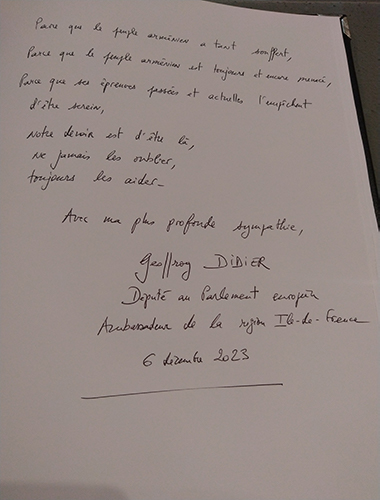 Parce que le peuple arménien a tant souffert,
Parce que le peuple arménien est toujours et encore menacé,
Parce que ses épreuves passées et actuelles l'empêchent
d'être serein,
Notre devoir est d'être là,
ne jamais les oublier,
toujours les aider_
Avec ma plus profonde sympathie,
Geoffroy DIDIER
Député au Parlement européen
Ambassadeur de la région Ile-de-France
6 décembre 2023